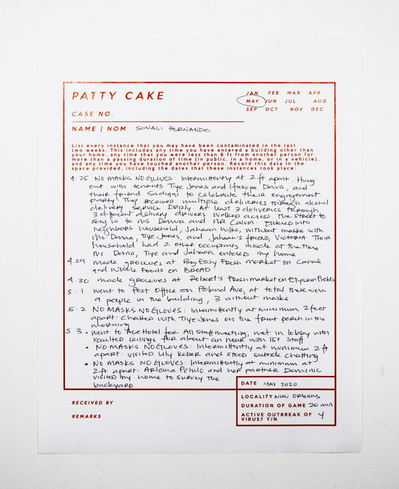 PATTY CAKE
JAN FEB MAR APR
MAY JUN JUL AUG
SEP OCT NOV DEC
CASE NO.
NAME | NOM SONALI FERNANDO
List every instance that you may have been contaminated in the last
two weeks. This includes any time you have entered a building other than
your home, any time that you were less than 6 ft from another person for
more than a passing duration of time (in public, in a home, or in a vehicle),
and any time you have touched another person. Record this data in the
space provided, including the dates that these instances took place:
4.25 NO MASKS NO GLOVES Intermittently at 2 ft apart. Hung
out with tenants Tiye Jones and Davis, and
their friend to celebrate their engagement
party. They received multiple deliveries through alcohol
delivery service Drizly. At least 3 deliveries through
3 different delivery drivers. Walked across the street to
say hi to Ms Donna and MR Calvin. Entered into
neighbors household, Jahmon Wilks, without masks with
Ms. Donna, Tiye Jones, and Jahmon's friend, Victoria. Their
household had 2 other occupants aside at the time
Ms. Donna, Tiye and Jahmon entered my home
4.29 made groceries at Big Easy Fresh market on Canal
and Whole Foods on BROAD
4.30 made groceries at Robert's Fresh market on Elysian Fields
5.1 went to Post Office on Poland Ave, at total there were
9 people in the building, 3 without masks
5.2 NO MASKS NO GLOVES: Intermittently at minimum 2 feet
apart. Chatted with Tiye Jones on the front porch in the
morning
5.3 • Went to Ace Hotel for All Staff meeting, met in lobby with
vaulted ceilings for about an hour with 1ST staff
• NO MASKS NO GLOVES: Intermittently at minimum 2 ft
apart: visited Lily Keber and stood outside chatting
• NO MASKS NO GLOVES Intermittently at minimum at
2 ft apart: Ariana and her partner Dominic
visited my home to survey the
backyard
DATE MAY 2020
LOCALITY NEW ORLEANS
DURATION OF GAME 20 min
ACTIVE OUTBREAK OF
VIRUS? Y/N Y
RECEIVED BY
REMARKS